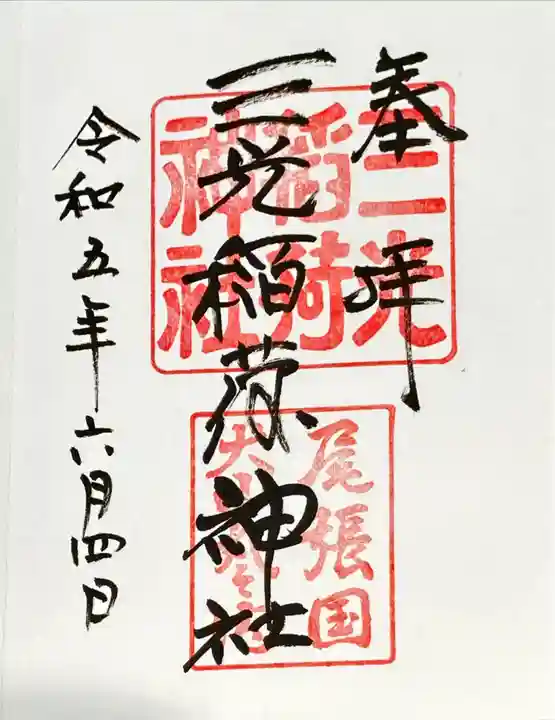 奉拝
三光稲荷神社
令和五年六月四日
三光
稲荷
神社
尾張国